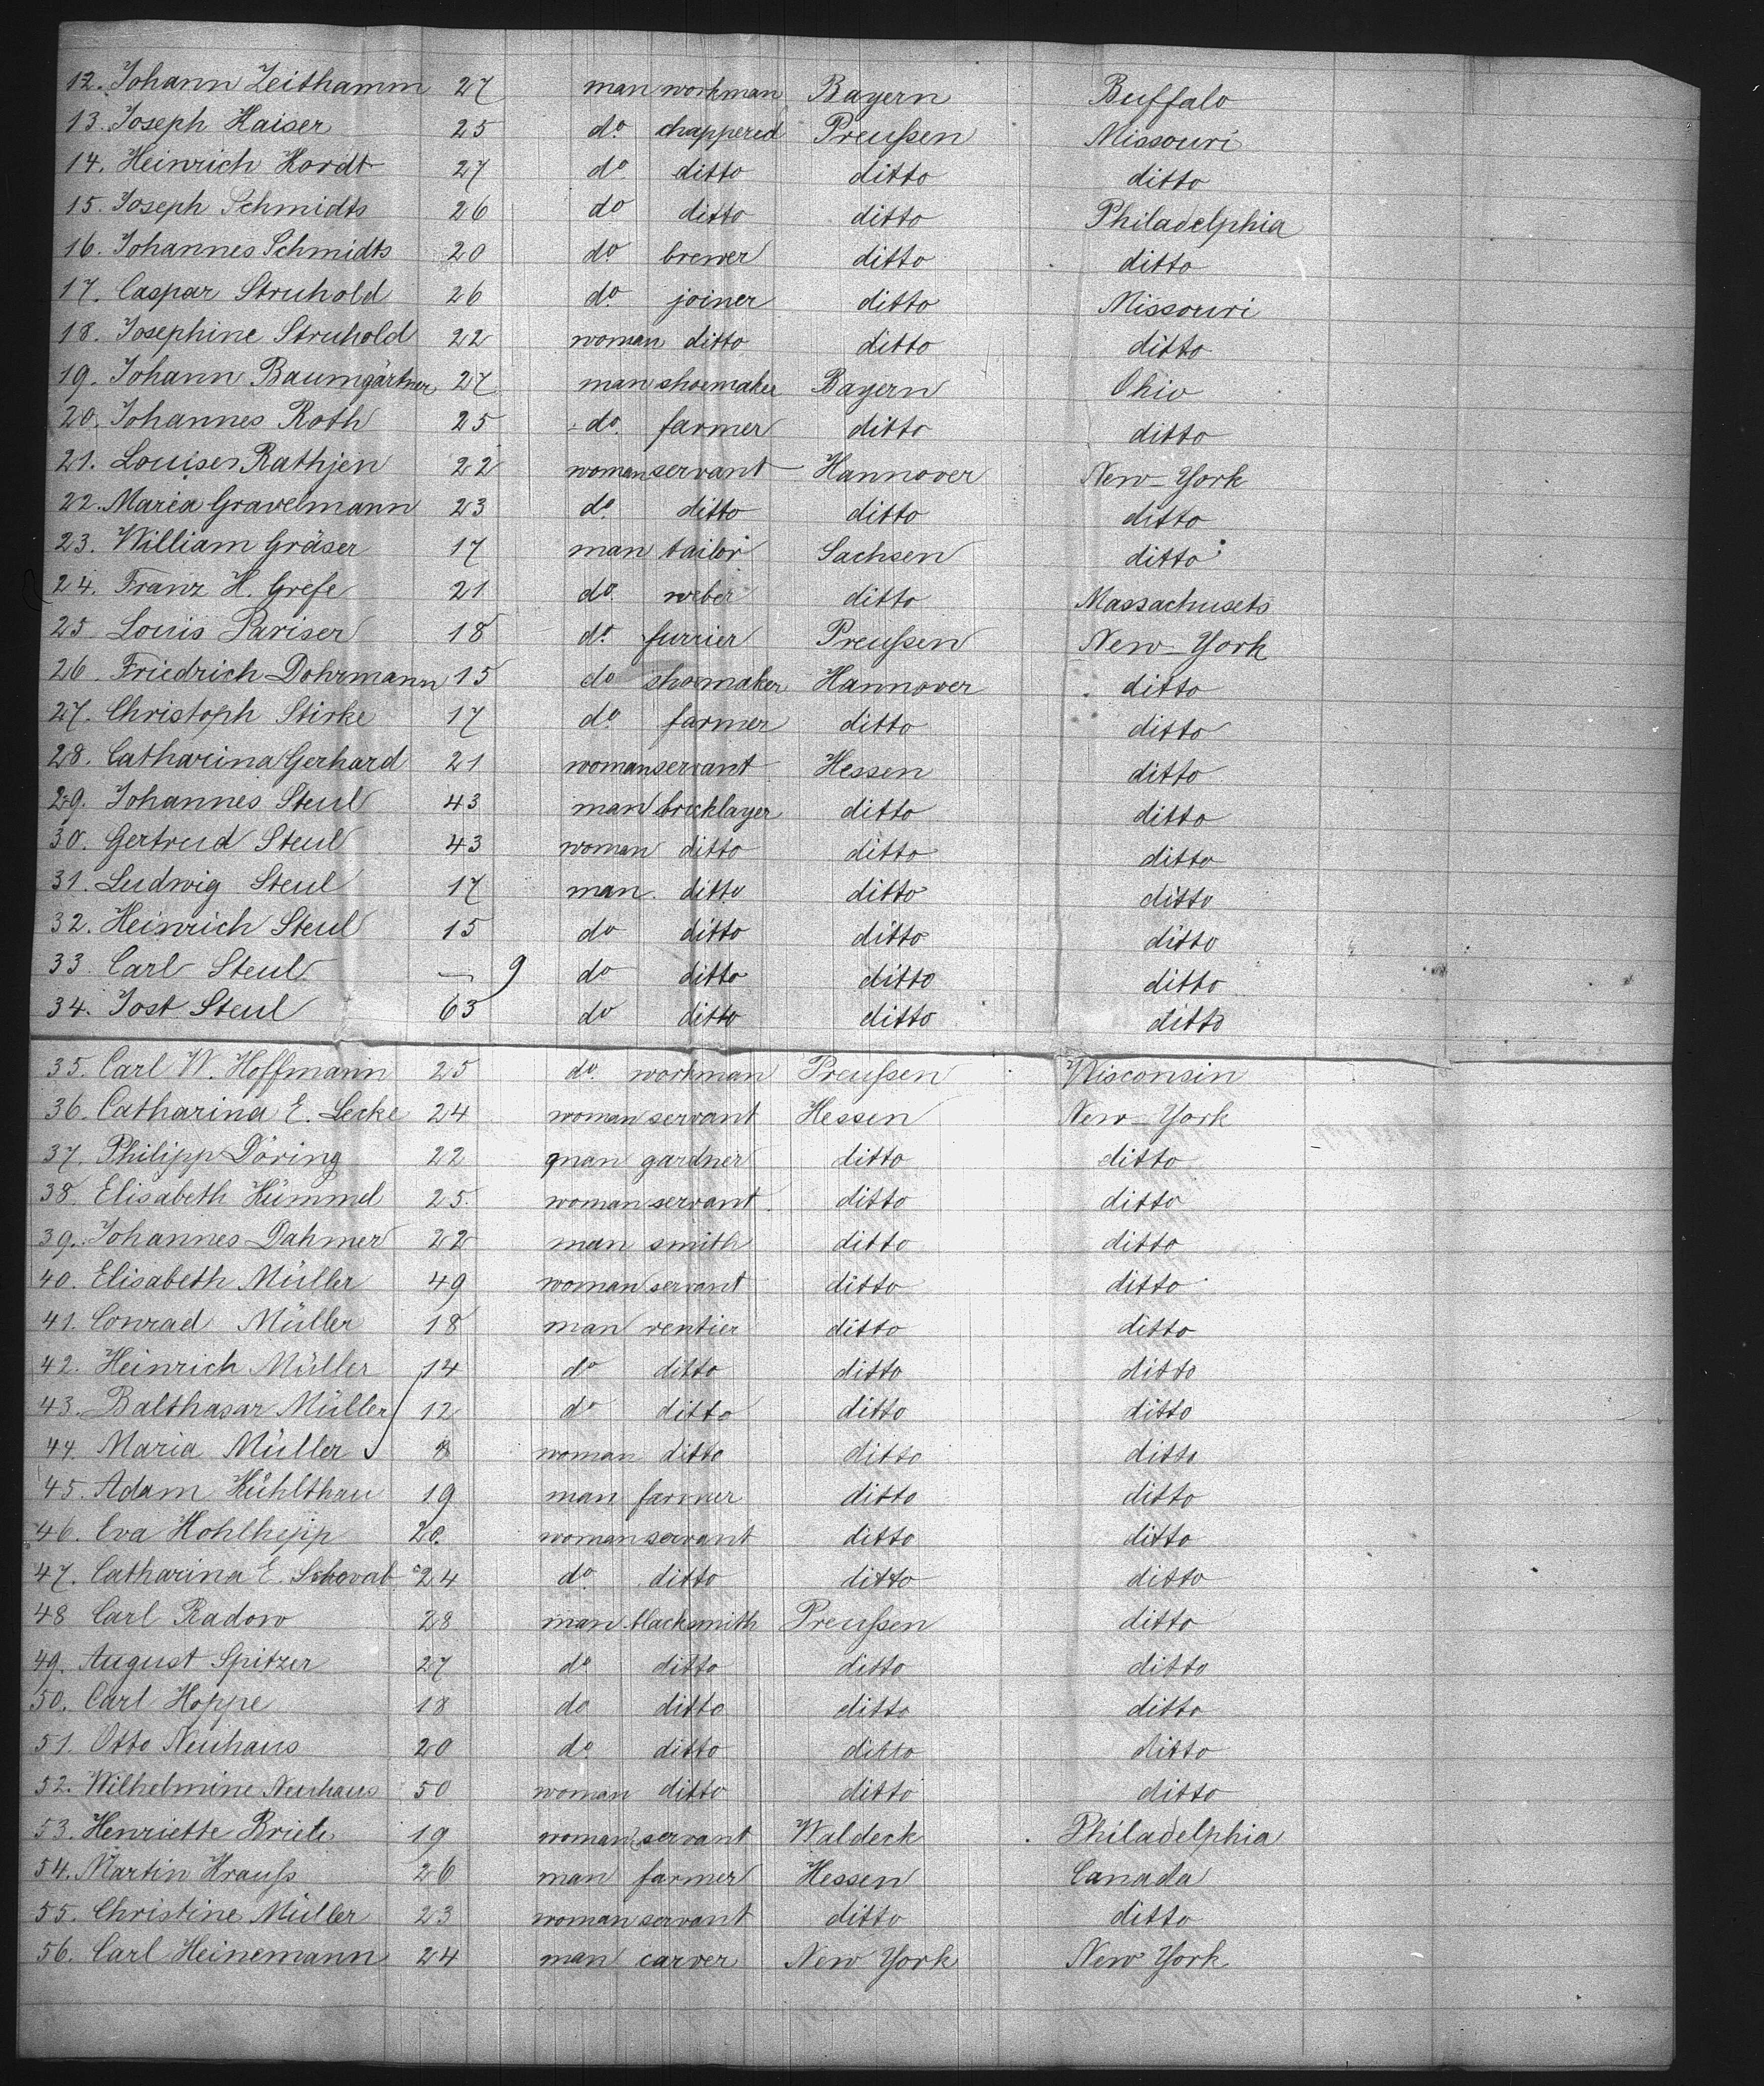 12. Johann Zeithamm 27 man workman Bayern Buffalo
13. Joseph Kaiser 25 do. chappered Preußen Missouri
14. Heinrich Kordt 27 do ditto ditto ditto
15. Joseph Schmidts 26 do ditto ditto Philadelphia
16. Johannes Schmidts 20 do. brewer ditto ditto
17. Caspar Struhold 26 do joiner ditto Missouri
18. Josephine Struhold 22 woman ditto ditto ditto
19. Johann Baumgärtner 27 man shoemaker Bayern Ohio
20. Johannes Roth 25 do. farmer ditto ditto
21. Louise Rathjen 22 woman servant Hannover New-York
22. Maria Gravelmann 23 do. ditto ditto ditto
23. William Gräser 17 man tailor Sachsen ditto
24. Franz H. Grefe 21 do. weber ditto Massachusets
25. Louis Pariser 18 do. furrier Preußen New-York
26. Friedrich Dohrmann 15 do shomaker Hannover ditto
27. Christoph Stirke 17 do farmer ditto ditto
28. Catharina Gerhard 21 woman servant Hessen ditto
29. Johannes Steul 43 man bricklayer ditto ditto
30. Gertrud Steul 43 woman ditto ditto ditto
31. Ludwig Steul 17 man. ditto ditto ditto
32. Heinrich Steul 15 do ditto ditto ditto
33. Carl Steul — 9 do ditto ditto ditto
34. Jost Steul 63 do ditto ditto ditto
35. Carl W. Hoffmann 25 do. workman Preußen Wisconsin
36. Catharina E. Lecke 24 woman servant Hessen New-York
37. Philipp Döring 22 man gardner ditto ditto
38. Elisabeth Kümmel 25. woman servant ditto ditto
39. Johannes Dahmer 22 man smith ditto ditto
40. Elisabeth Müller 49 woman servant ditto ditto
41. Conrad Müller 18 man rentier ditto ditto
42. Heinrich Müller 14 do ditto ditto ditto
43. Balthasar Müller 12 do ditto ditto ditto
44. Maria Müller 8 woman ditto ditto ditto
45. Adam Kühlthau 19 man farmer ditto ditto
46. Eva Hohlhepp 20. woman servant ditto ditto
47. Catharina E. 24 do. ditto ditto ditto
48 Carl Radow 28 man blacksmith Preußen ditto
49. August Spitzer 27 do ditto ditto ditto
50. Carl Hoppe 18 do ditto ditto ditto
51. Otto Neuhaus 20 do. ditto ditto ditto
52. Wilhelmine Neuhaus 50 woman ditto ditto ditto
53. Henriette Briele 19 woman servant Waldeck Philadelphia
54. Martin Krauß 26 man farmer Hessen Canada
55. Christine Müller 23 woman servant ditto ditto
56. Carl Heinemann 24 man carver New York New York